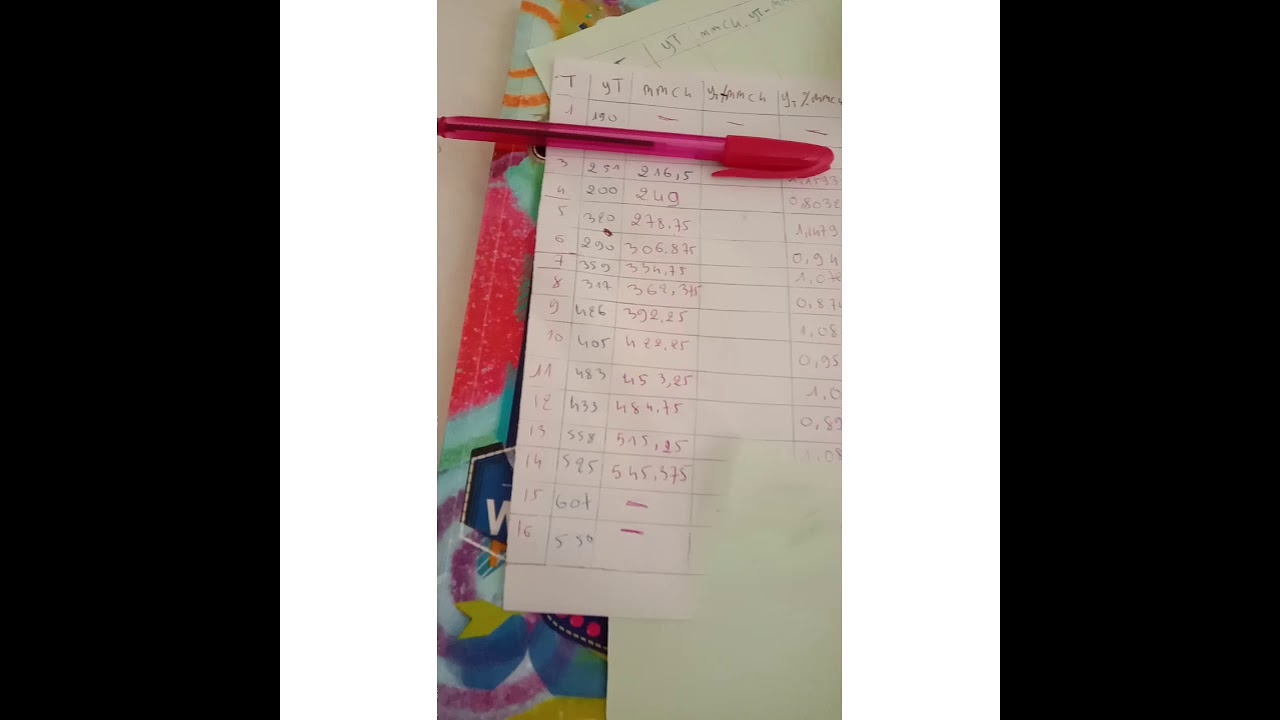 YT mmch YT-m
T YT mmch YT/mmch YT%mmch
1 190 — — —
3 251 216,5
4 200 249 0,8032
5 320 278,75 1,1479
6 290 306,875 0,94
7 359 334,75 1,07
8 317 362,375 0,874
9 426 392,25 1,08
10 405 422,25 0,95
11 483 453,25 1,0
12 433 484,75 0,89
13 558 515,25 1,08
14 525 545,375
15 607 —
16 550 —
W